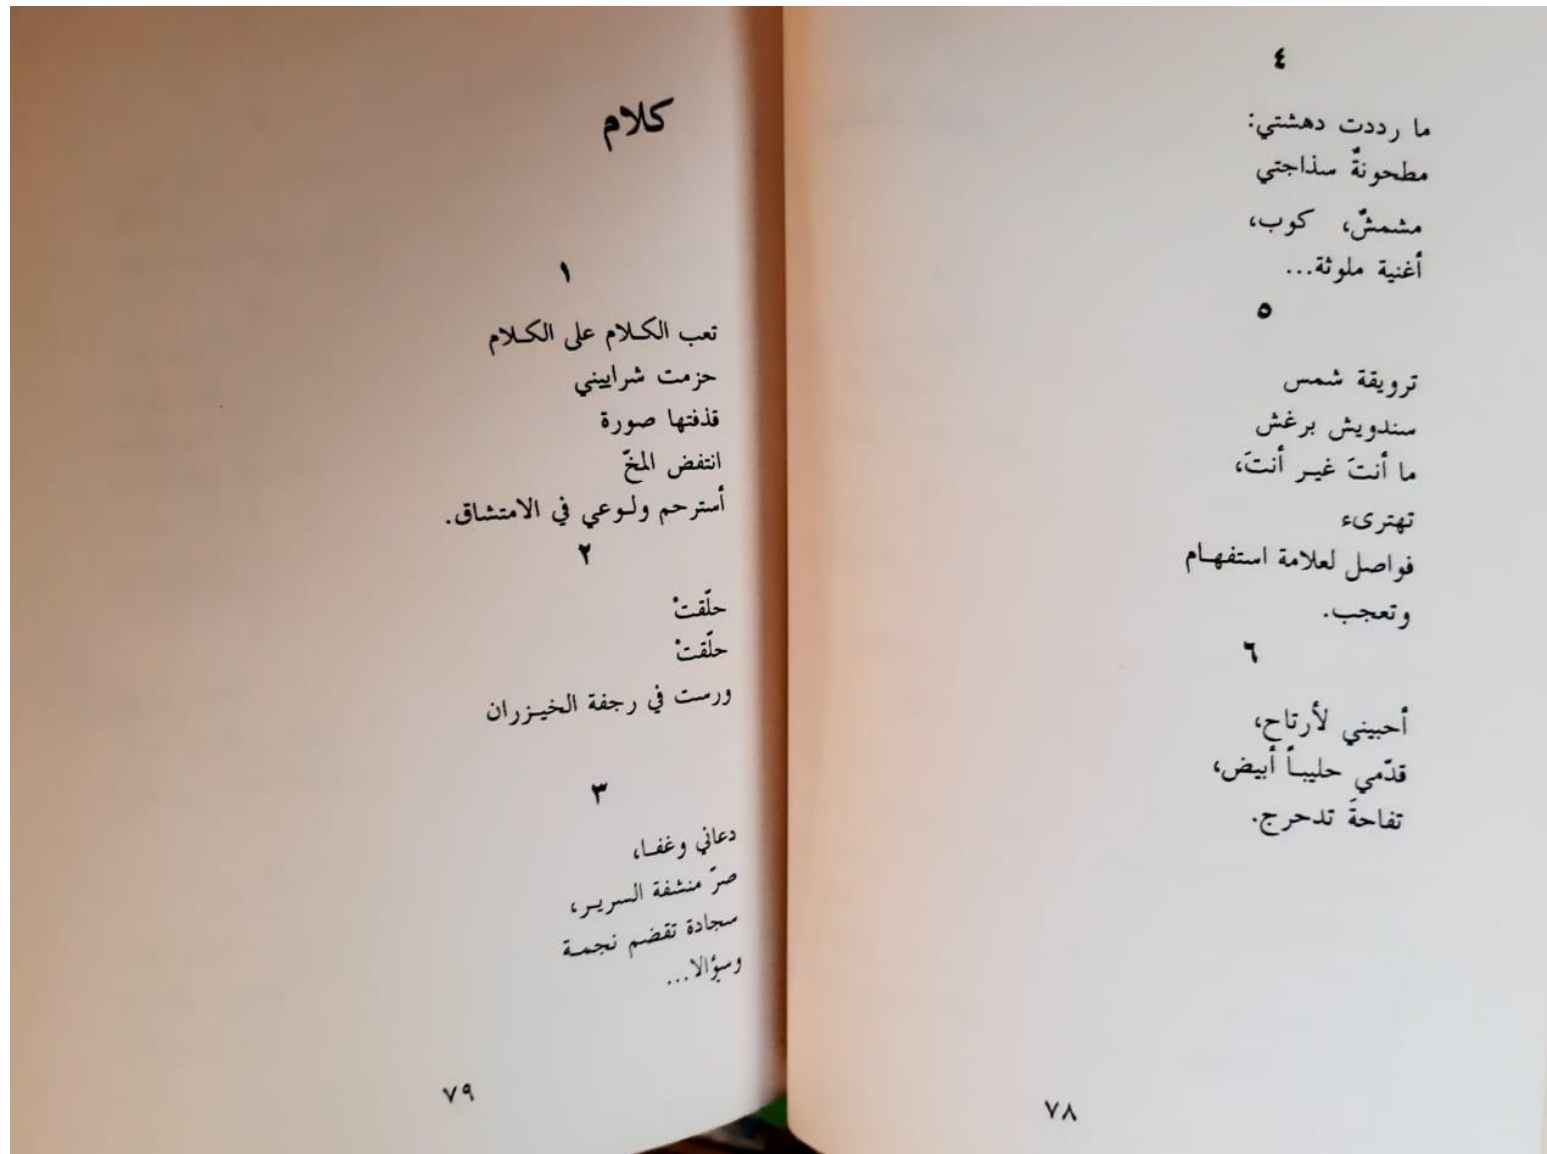 ٤
ما رددت دهشتي:
مطحونةٌ سذاجتي
مشمشٌ، كوب،
أغنية ملوثة...
٥
ترويقة شمس
سندويش برغش
ما أنتَ غير أنتَ،
تهترىء
فواصل لعلامة استفهام
وتعجب.
٦
أحبيني لأرتاح،
قدّمي حليباً أبيض،
تفاحةَ تدحرج.
٧٨
كلام
١
تعب الكلام على الكلام
حزمت شراييني
قذفتها صورة
انتفض المخّ
أسترحم ولوعي في الامتشاق.
٢
حلّقتْ
حلّقتْ
ورست في رجفة الخيزران
٣
دعاني وغفا،
صرّ منشفة السرير،
سجادة تقضم نجمة
وسؤالا...
٧٩